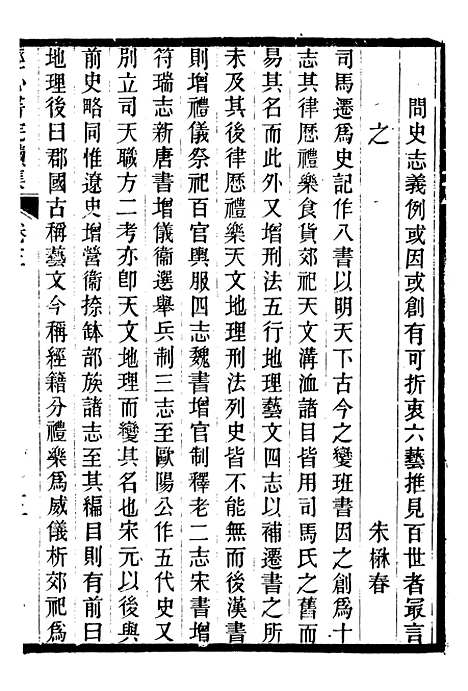 問史志義例或因或創有可折衷六藝推見百世者冣言
之
朱楙春
司馬遷爲史記作八書以明天下古今之變班書因之創爲十
志其律歴禮樂食貨郊祀天文溝洫諸目皆用司馬氏之舊而
易其名而此外又增刑法五行地理藝文四志以補遷書之所
未及其後律歴禮樂天文地理刑法列史皆不能無而後漢書
則增禮儀祭祀百官輿服四志魏書增官制釋老二志宋書增
符瑞志新唐書增儀衞選舉兵制三志至歐陽公作五代史又
別立司天職方二考亦卽天文地理而變其名也宋元以後與
前史略同惟遼史增營衞捺鉢部族諸志至其稨目則有前曰
地理後曰郡國古稱藝文今稱經籍分禮樂爲威儀析郊祀爲
經心書院續集
卷三